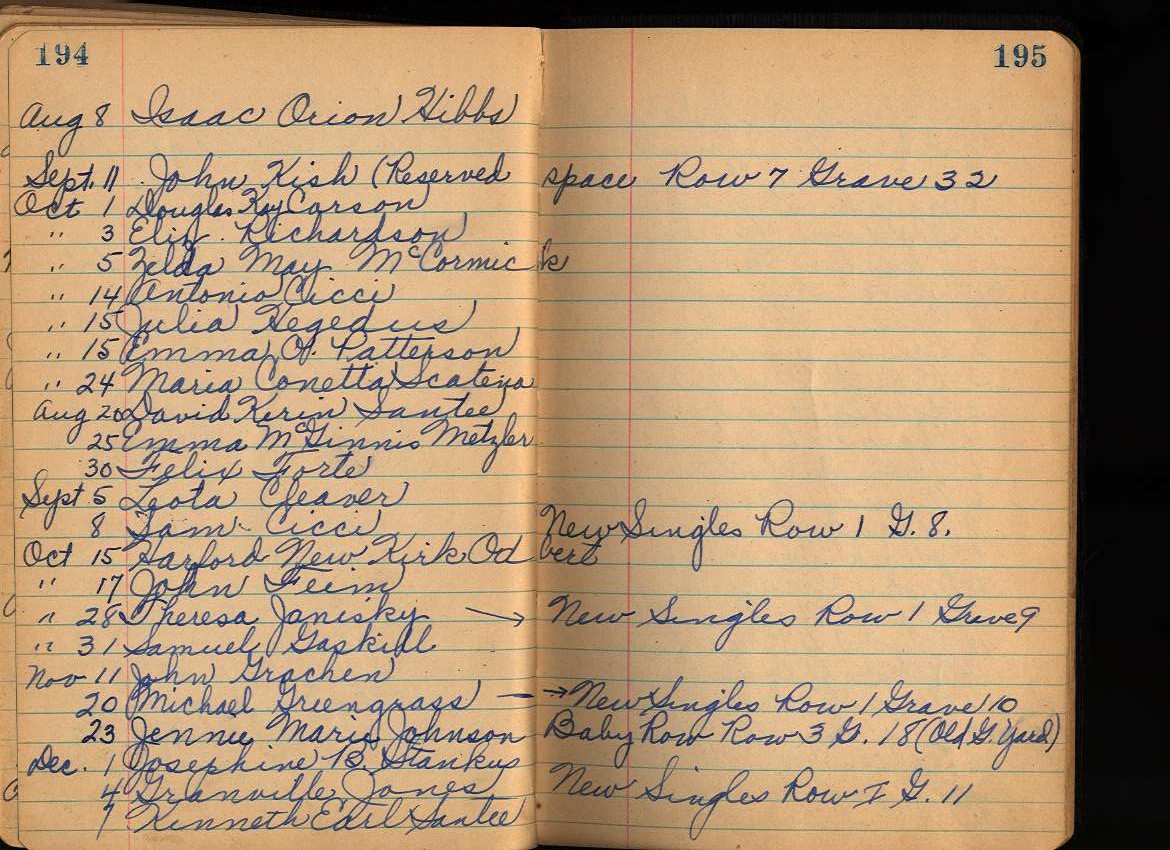 194 195
Aug 8 Isaac Orion Hibbs
Sept. 11 John Kish (Reserved space Row 7 Grave 32
Oct 1 Douglas Ray Carson
" 3 Eliz. Richardson
" 5 Zelda May McCormick
" 14 Antonio Cicci
" 15 Julia Hegedus
" 15 Emma A. Patterson
" 24 Maria Conetta Scatena
Aug 20 David Kerin Santee
25 Emma McGinnis Metzler
30 Felix Forte
Sept 5 Leota Cleaver
8 Sam Cicci New Singles Row 1 G. 8.
Oct 15 Harford New Kirk Od bert
" 17 John Feim
" 28 Theresa Janisky → New Singles Row 1 Grave 9
" 31 Samuel Gaskill
Nov 11 John Grachen
20 Michael Greengrass — → New Singles Row 1 Grave 10
23 Jennie Marie Johnson Baby Row Row 3 G. 18 (Old G. Yard)
Dec. 1 Josephine B. Stankus
4 Granville Jones New Singles Row I G. 11
7 Kenneth Earl Santee